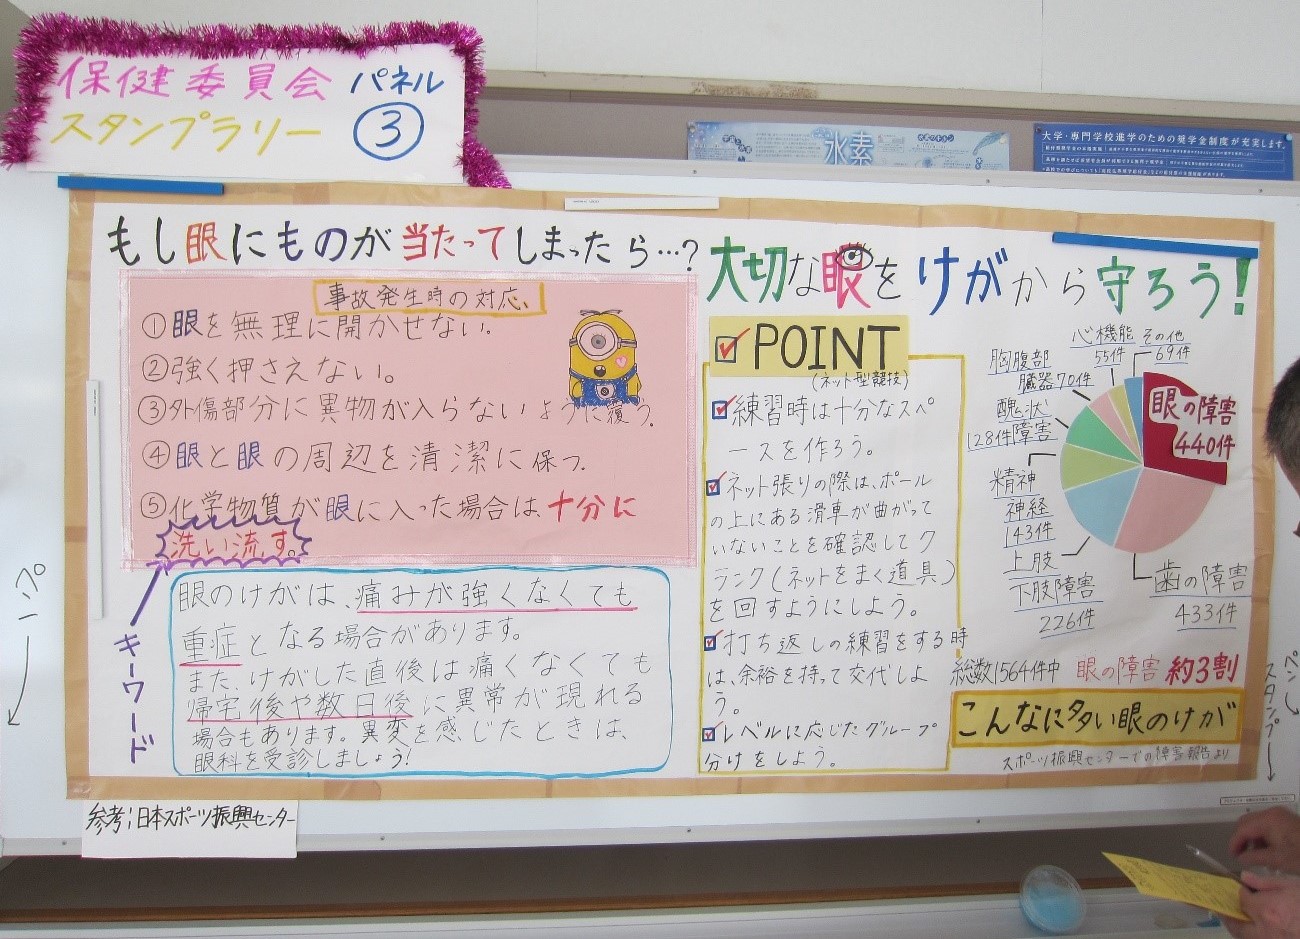 保健委員会 パネル
スタンプラリー ③
水素
大学・専門学校進学のための奨学金制度が充実します。
もし眼にものが当たってしまったら…?
事故発生時の対応、
①眼を無理に開かせない。
②強く押さえない。
③外傷部分に異物が入らないように覆う。
④眼と眼の周辺を清潔に保つ。
⑤化学物質が眼に入った場合は、十分に
洗い流す。
キーワード
眼のけがは、痛みが強くなくても
重症となる場合があります。
また、けがした直後は痛くなくても
帰宅後や数日後に異常が現れる
場合もあります。異変を感じたときは、
眼科を受診しましょう!
参考;日本スポーツ振興センター
大切な眼をけがから守ろう!
POINT
(ネット型競技)
練習時は十分なスペ
ースを作ろう。
ネット張りの際は、ポール
の上にある滑車が曲がって
いないことを確認してク
ランク(ネットをまく道具)
を回すようにしよう。
打ち返しの練習をする時
は、余裕を持って交代しよ
う。
レベルに応じたグループ
分けをしよう。
心機能
55件
その他
69件
胸腹部
臓器70件
醜状
128件障害
精神
神経
143件
上肢
下肢障害
226件
眼の障害
440件
歯の障害
433件
総数1564件中 眼の障害 約3割
こんなに多い眼のけが
スポーツ振興センターでの障害報告より
ペン
スタンプ